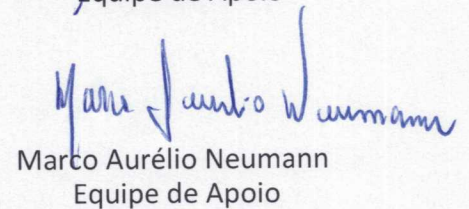 Equipe de Apoio
Marco Aurélio Neumann
Marco Aurélio Neumann
Equipe de Apoio